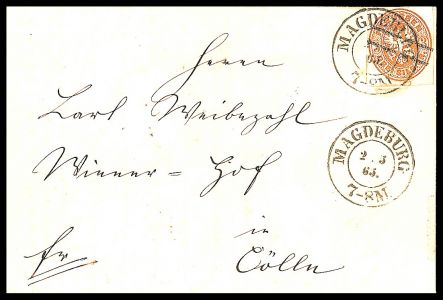 MAGDEBURG
7-8M
Herrn
Carl Weibezahl
MAGDEBURG
2 . 3
63.
7-8M.
Wiener = Hof
in
fr
Cölln